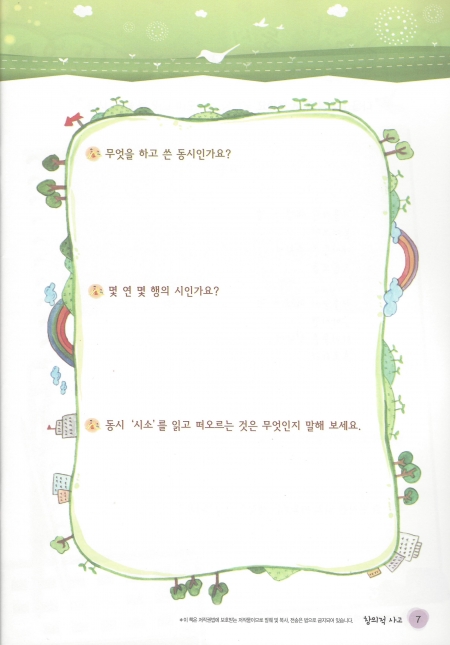 무엇을 하고 쓴 동시인가요?
몇 연 몇 행의 시인가요?
동시 '시소'를 읽고 떠오르는 것은 무엇인지 말해 보세요.
*이 책은 저작권법에 보호받는 저작물이므로 복제 및 복사, 전송은 법으로 금지되어 있습니다.
창의적 사고 7